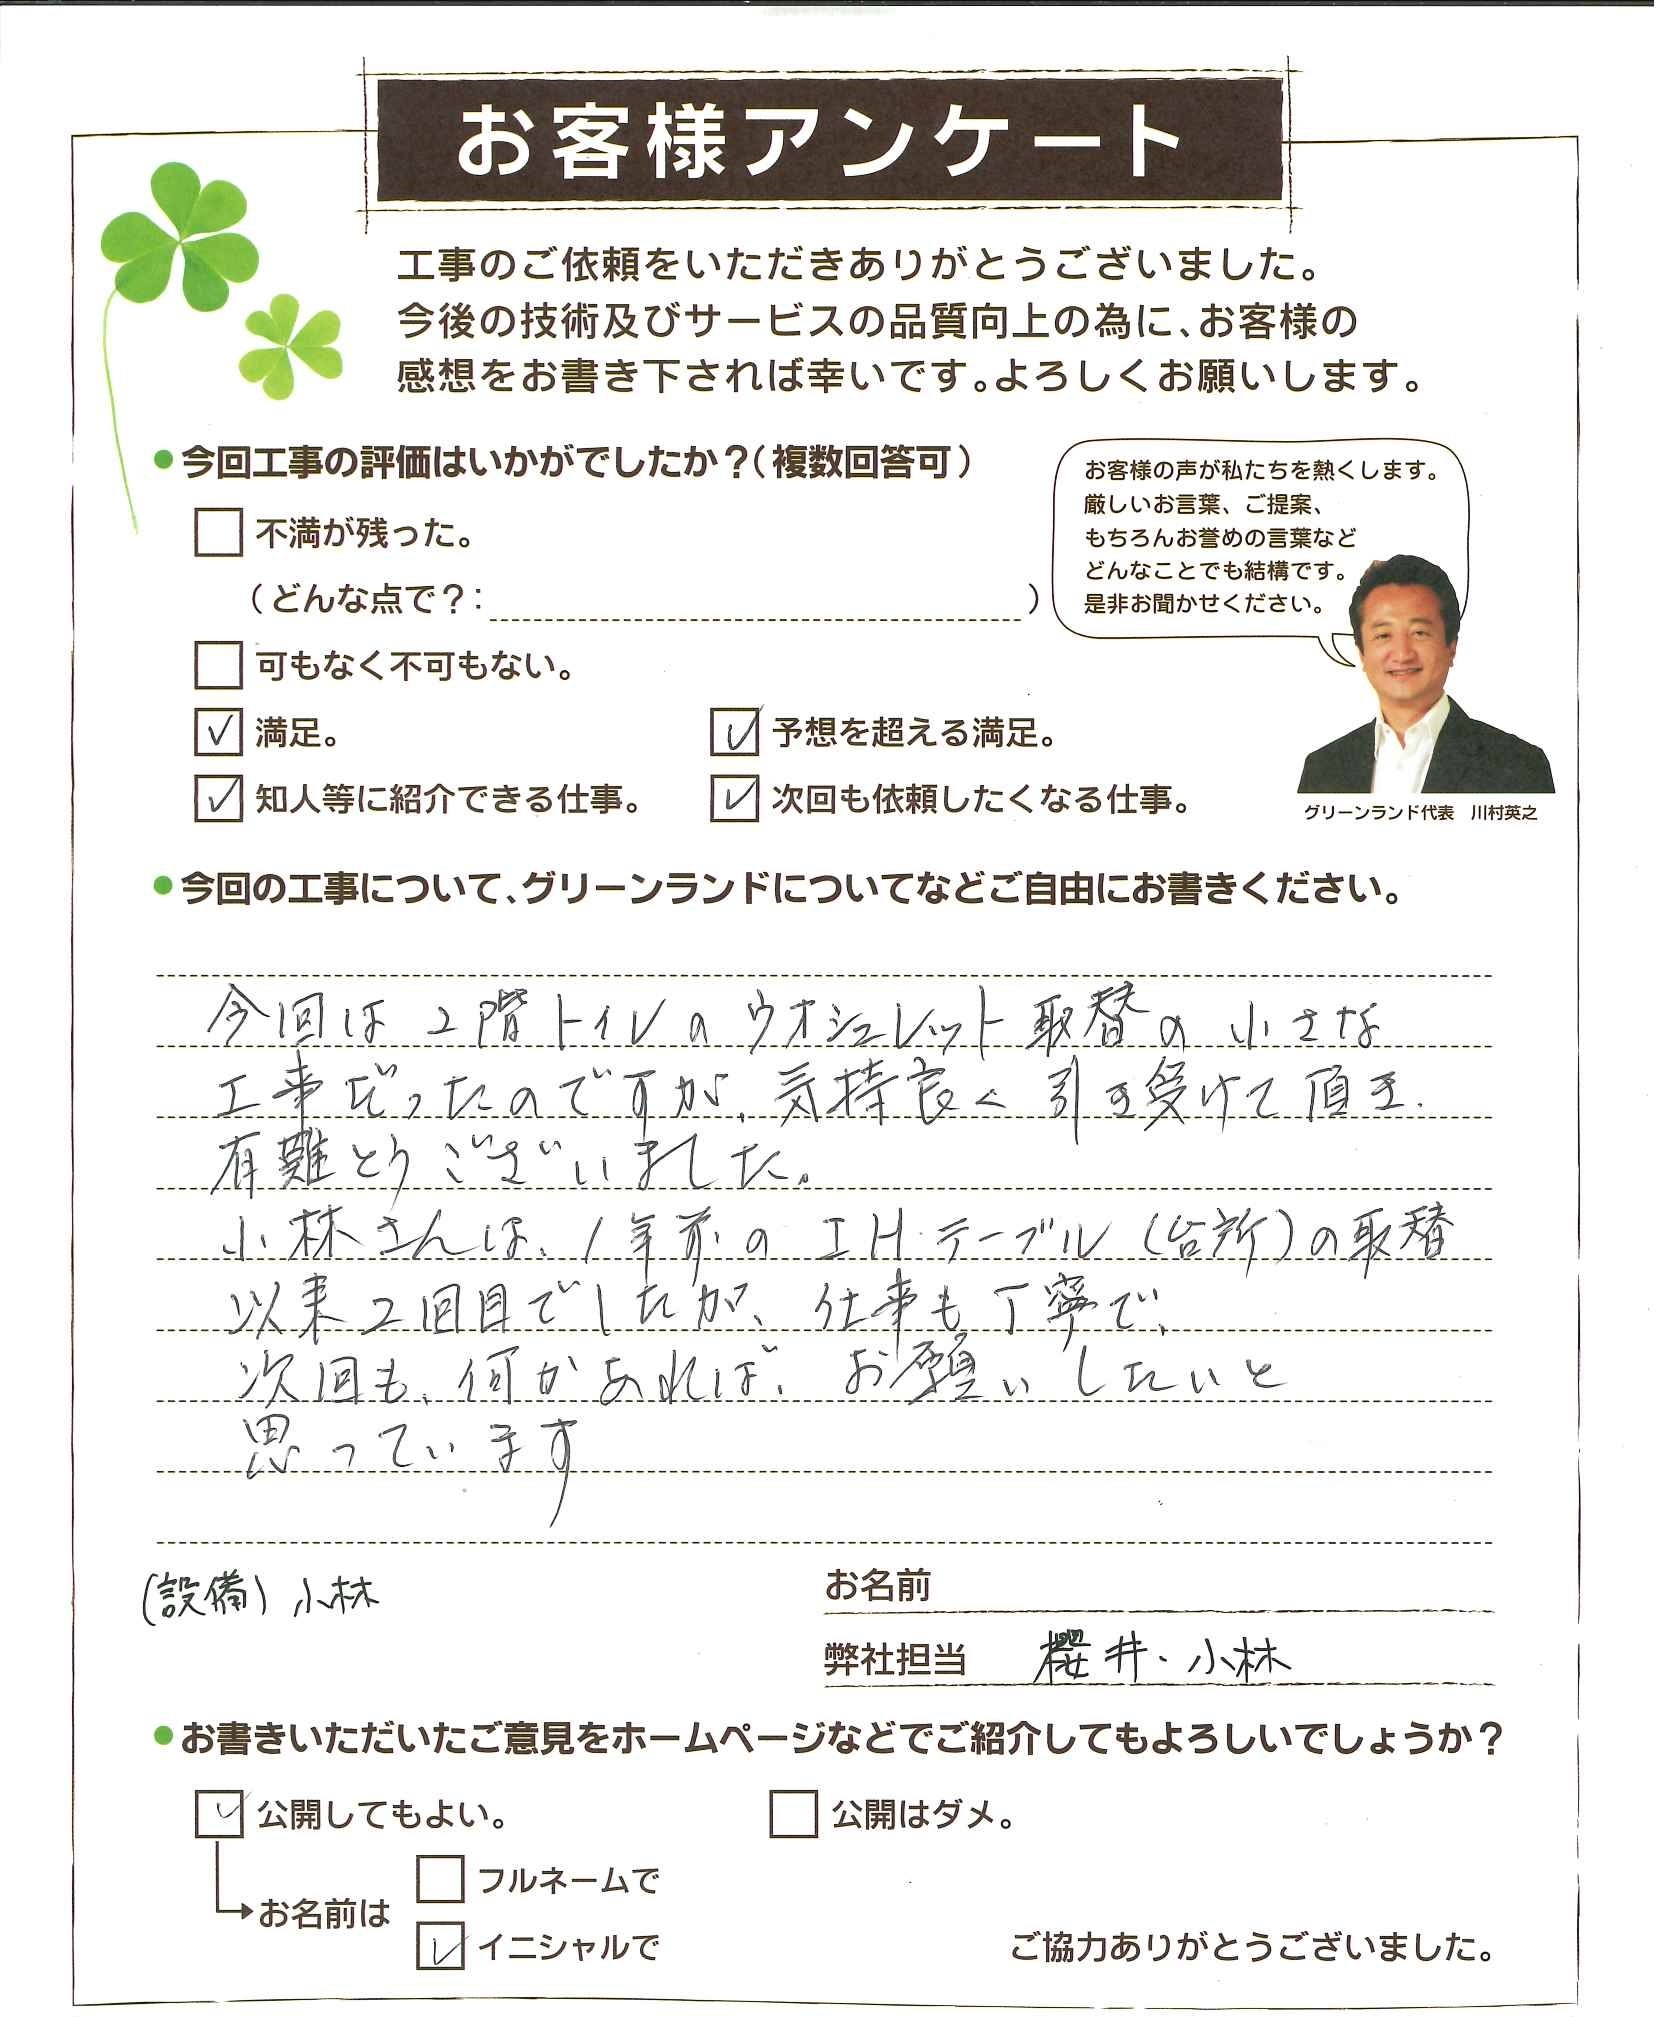 お客様アンケート
工事のご依頼をいただきありがとうございました。
今後の技術及びサービスの品質向上の為に、お客様の
感想をお書き下されば幸いです。よろしくお願いします。
●今回工事の評価はいかがでしたか？（複数回答可）
□ 不満が残った。
（どんな点で？：　　　　　）
□ 可もなく不可もない。
☑ 満足。
☑ 予想を超える満足。
☑ 知人等に紹介できる仕事。
☑ 次回も依頼したくなる仕事。
お客様の声が私たちを熱くします。
厳しいお言葉、ご提案、
もちろんお誉めの言葉など
どんなことでも結構です。
是非お聞かせください。
グリーンランド代表　川村英之
●今回の工事について、グリーンランドについてなどご自由にお書きください。
今回は2階トイレのウオシュレット取替の小さな
工事だったのですが、気持良く引き受けて頂き
有難とうございました。
小林さんは、1年前のIH・テーブル（台所）の取替
以来2回目でしたが、仕事も丁寧で、
次回も、何かあれば、お願いしたいと
思っています
（設備）小林
お名前
弊社担当　櫻井・小林
●お書きいただいたご意見をホームページなどでご紹介してもよろしいでしょうか？
☑ 公開してもよい。
□ 公開はダメ。
お名前は
□ フルネームで
☑ イニシャルで
ご協力ありがとうございました。